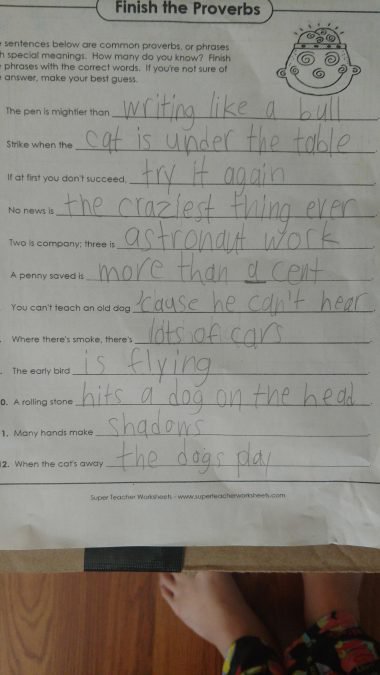 Finish the Proverbs
sentences below are common proverbs, or phrases
special meanings. How many do you know? Finish
phrases with the correct words. If you're not sure of
answer, make your best guess.
The pen is mightier than writing like a bull.
Strike when the cat is under the table.
If at first you don't succeed, try it again.
No news is the craziest thing ever.
Two is company; three is astronaut work.
A penny saved is more than a cent.
You can't teach an old dog 'cause he can't hear.
Where there's smoke, there's lots of cars.
The early bird is flying.
0. A rolling stone hits a dog on the head.
1. Many hands make shadows.
2. When the cat's away the dogs play.
Super Teacher Worksheets - www.superteacherworksheets.com